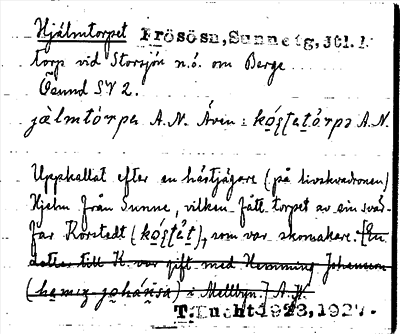 Hjälmtorpet Frösön, Sunneтg, Jtl. l.
torp vid Storsjön n.ö. om Berge
Ösund SV 2.
jàlmtórpa A.N. Även: kóʃtatórpə A.N.
Uppkallat efter en hästjägare (på livskvadronen)
Hjelm från Sunne, vilken fått torpet av sin svär-
far Körstedt (kóʃtǽt), som var skomakare. [En
dotter till K. var gift med Hemming Johansson
i Mellbyn.] A.N.
1923, 1927.